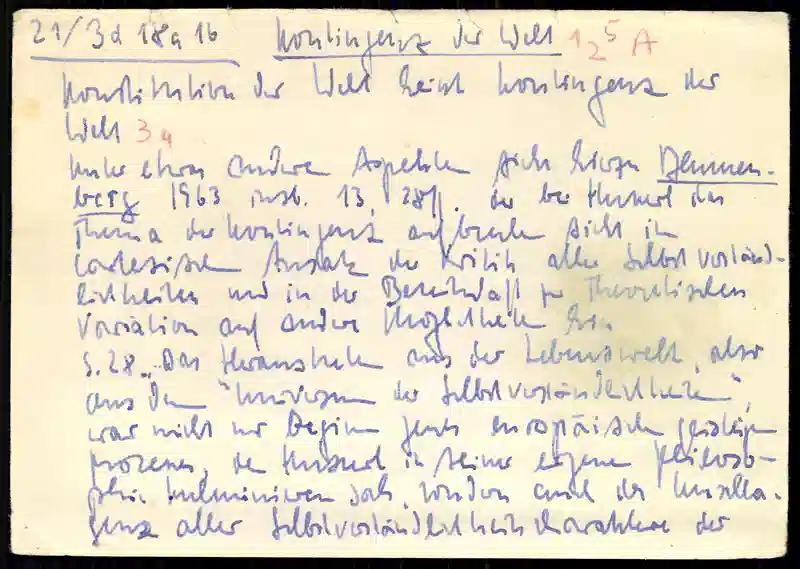 21/3d18a16 Kontingenz der Welt 1 2 5 A
Konstitution der Welt heißt Kontingenz der
Welt 3 4
Unter etwas anderen Aspekten sieht hierzu Blumen-
berg 1963 insb. 13, 28ff. der bei Husserl das
Thema der Kontingenz aufbrechen sieht im
cartesischen Ansatz der Kritik aller Selbstverständ-
lichkeiten und in der Bereitschaft zur theoretischen
Variation auf andere Möglichkeiten hin
S. 28 „Das Heraustreten aus der Lebenswelt, also
aus dem "Universum der Selbstverständlichkeiten",
war nicht nur Beginn jenes europäischen geistigen
Prozesses, den Husserl in seiner eigenen Philoso-
phie kulminieren sah, sondern auch der
aller Selbstverständlichkeitscharaktere der